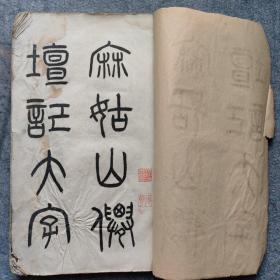 麻姑山僊
壇記大字